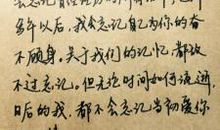 多年以后,我会忘记自己为你的奋
不顾身。关于我们的记忆都敌
不过忘记。但无论时间如何流逝,
日后的我,都不会忘记当初爱你